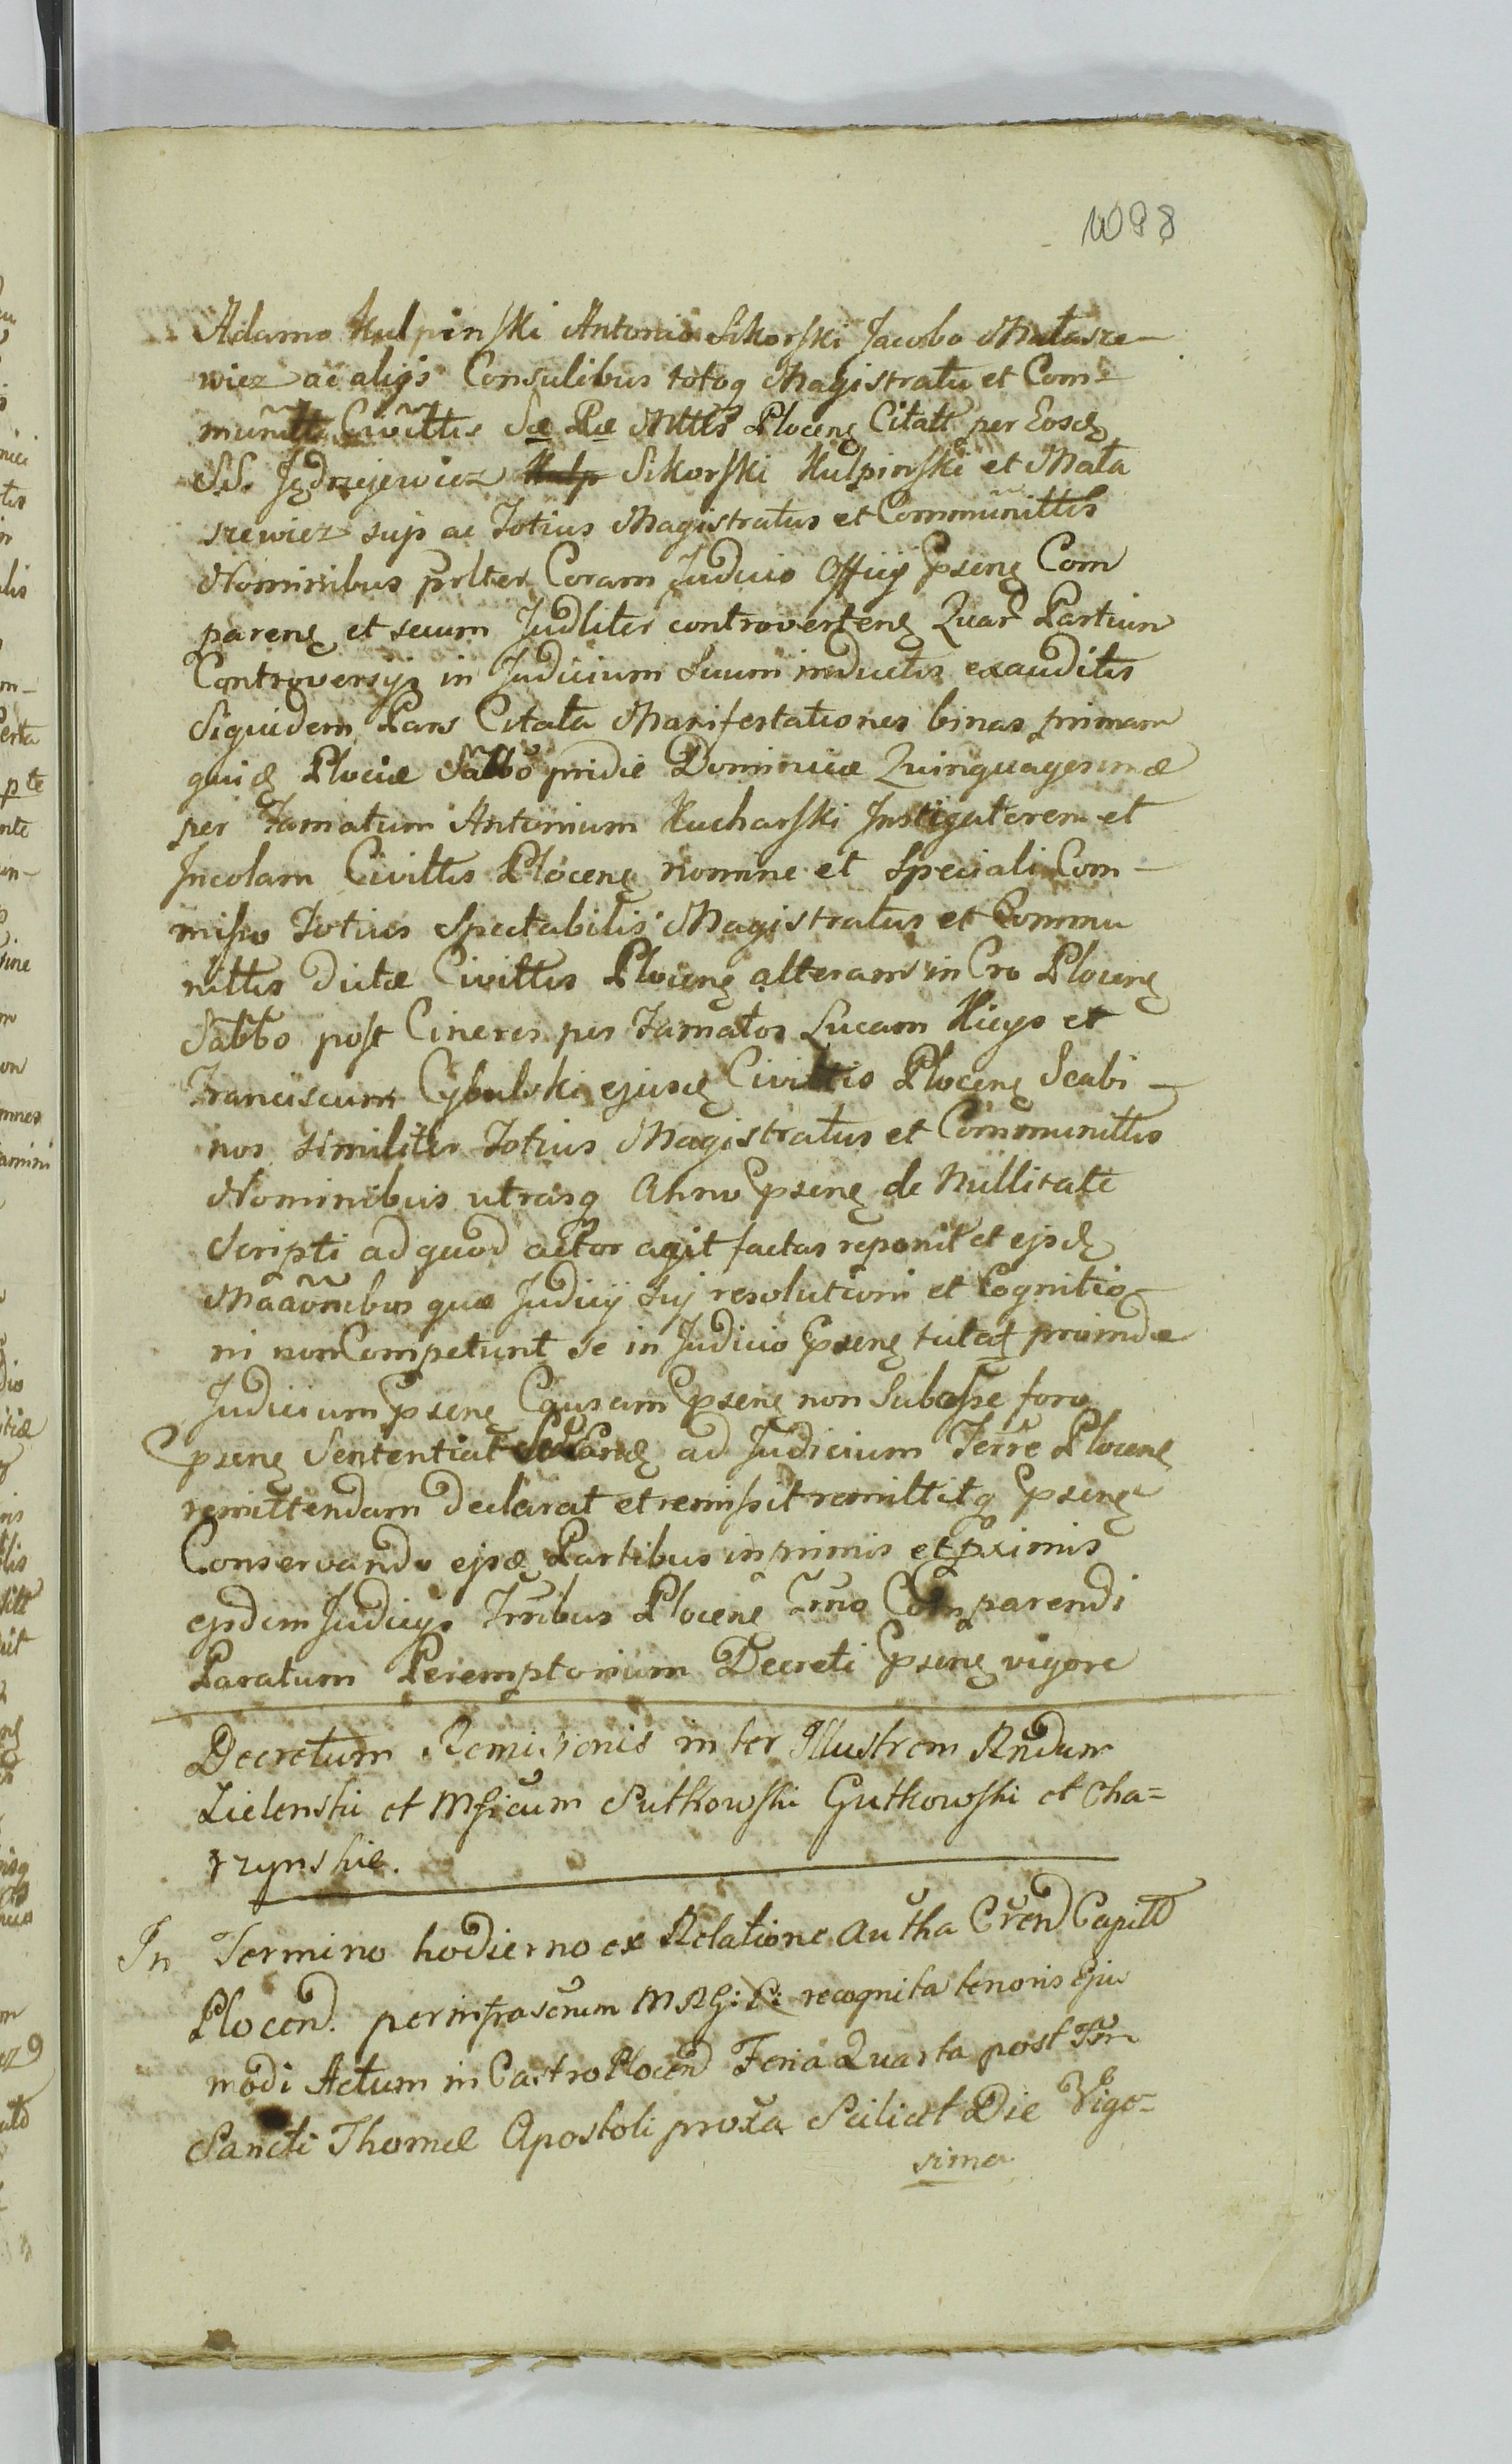 1098
Adamo Kulpinski Antonio Sikorski Jacobo Matasze-
wicz ac alijs Consulibus totoq Magistratu et Com-
munitt Civittis Sæ Ræ Mttis Plocenȩ Citatt per Eosdȩ
SS. Jędrzejewicz Kulp Sikorski Kulpinski et Mata
szewicz sup ac Totius Magistratus et Communittis
Nominibus prlter Coram Judicio Officij Psenȩ Com
parenȩ et secum Judliter controvertenȩ Quar Partium
Controversijs in Judicium Suum inductis exauditis
Siquidem Pars Citata Manifestationes binas primam
quidȩ Plociæ Sabbo pridie Dominicæ Quinquagesimæ
per Famatum Antonium Kucharski Instigatorem et
Incolam Civittis Plocenȩ nomine et Speciali Com-
misso Totius Spectabilis Magistratus et Commu
nittis dictæ Civittis Plocenȩ alteram in Cro Plocenȩ
Sabbo post Cineres per Famatos Lucam Hieys et
Franciscum Cybulski ejusdȩ Civittis Plocenȩ Scabi-
nos similiter Totius Magistratus et Communittis
Nominibus utrasq Anno Psenȩ de Nullitate
Scripti ad quod actor agit factas reponit et ejsdȩ
Maaonibus quæ Judicij sui resolutioni et Cognitio-
ni non Competunt se in Judicio Psenȩ proinde
Judicium Psenȩ Causam Psenȩ non Subesse foro
Psenȩ Sententiat ad Judicium Terre Plocenȩ
remittendam declarat et remisit remittitq Psenȩ
Conservando ejsdȩ Partibus in primis et Pximis
ejsdem Judicijs Trribus Plocenȩ Trno Comparendi
Paratum Peremptorium Decreti Psenȩ vigore
Decretum Remissionis inter Illustrem Rndum
Zielenski et Mficum Sutkowski Gutkowski et Cha=
rzynskie.
In Termino hodierno ex Relatione Autha Crend Capitt
Plocen. per infrascrum MRG: C: recognita tenoris Eju
modi Actum in Castro Plocen Feria Quarta post Fm
Sancti Thomæ Apostoli proxa Scilicet Die Vige-
sima